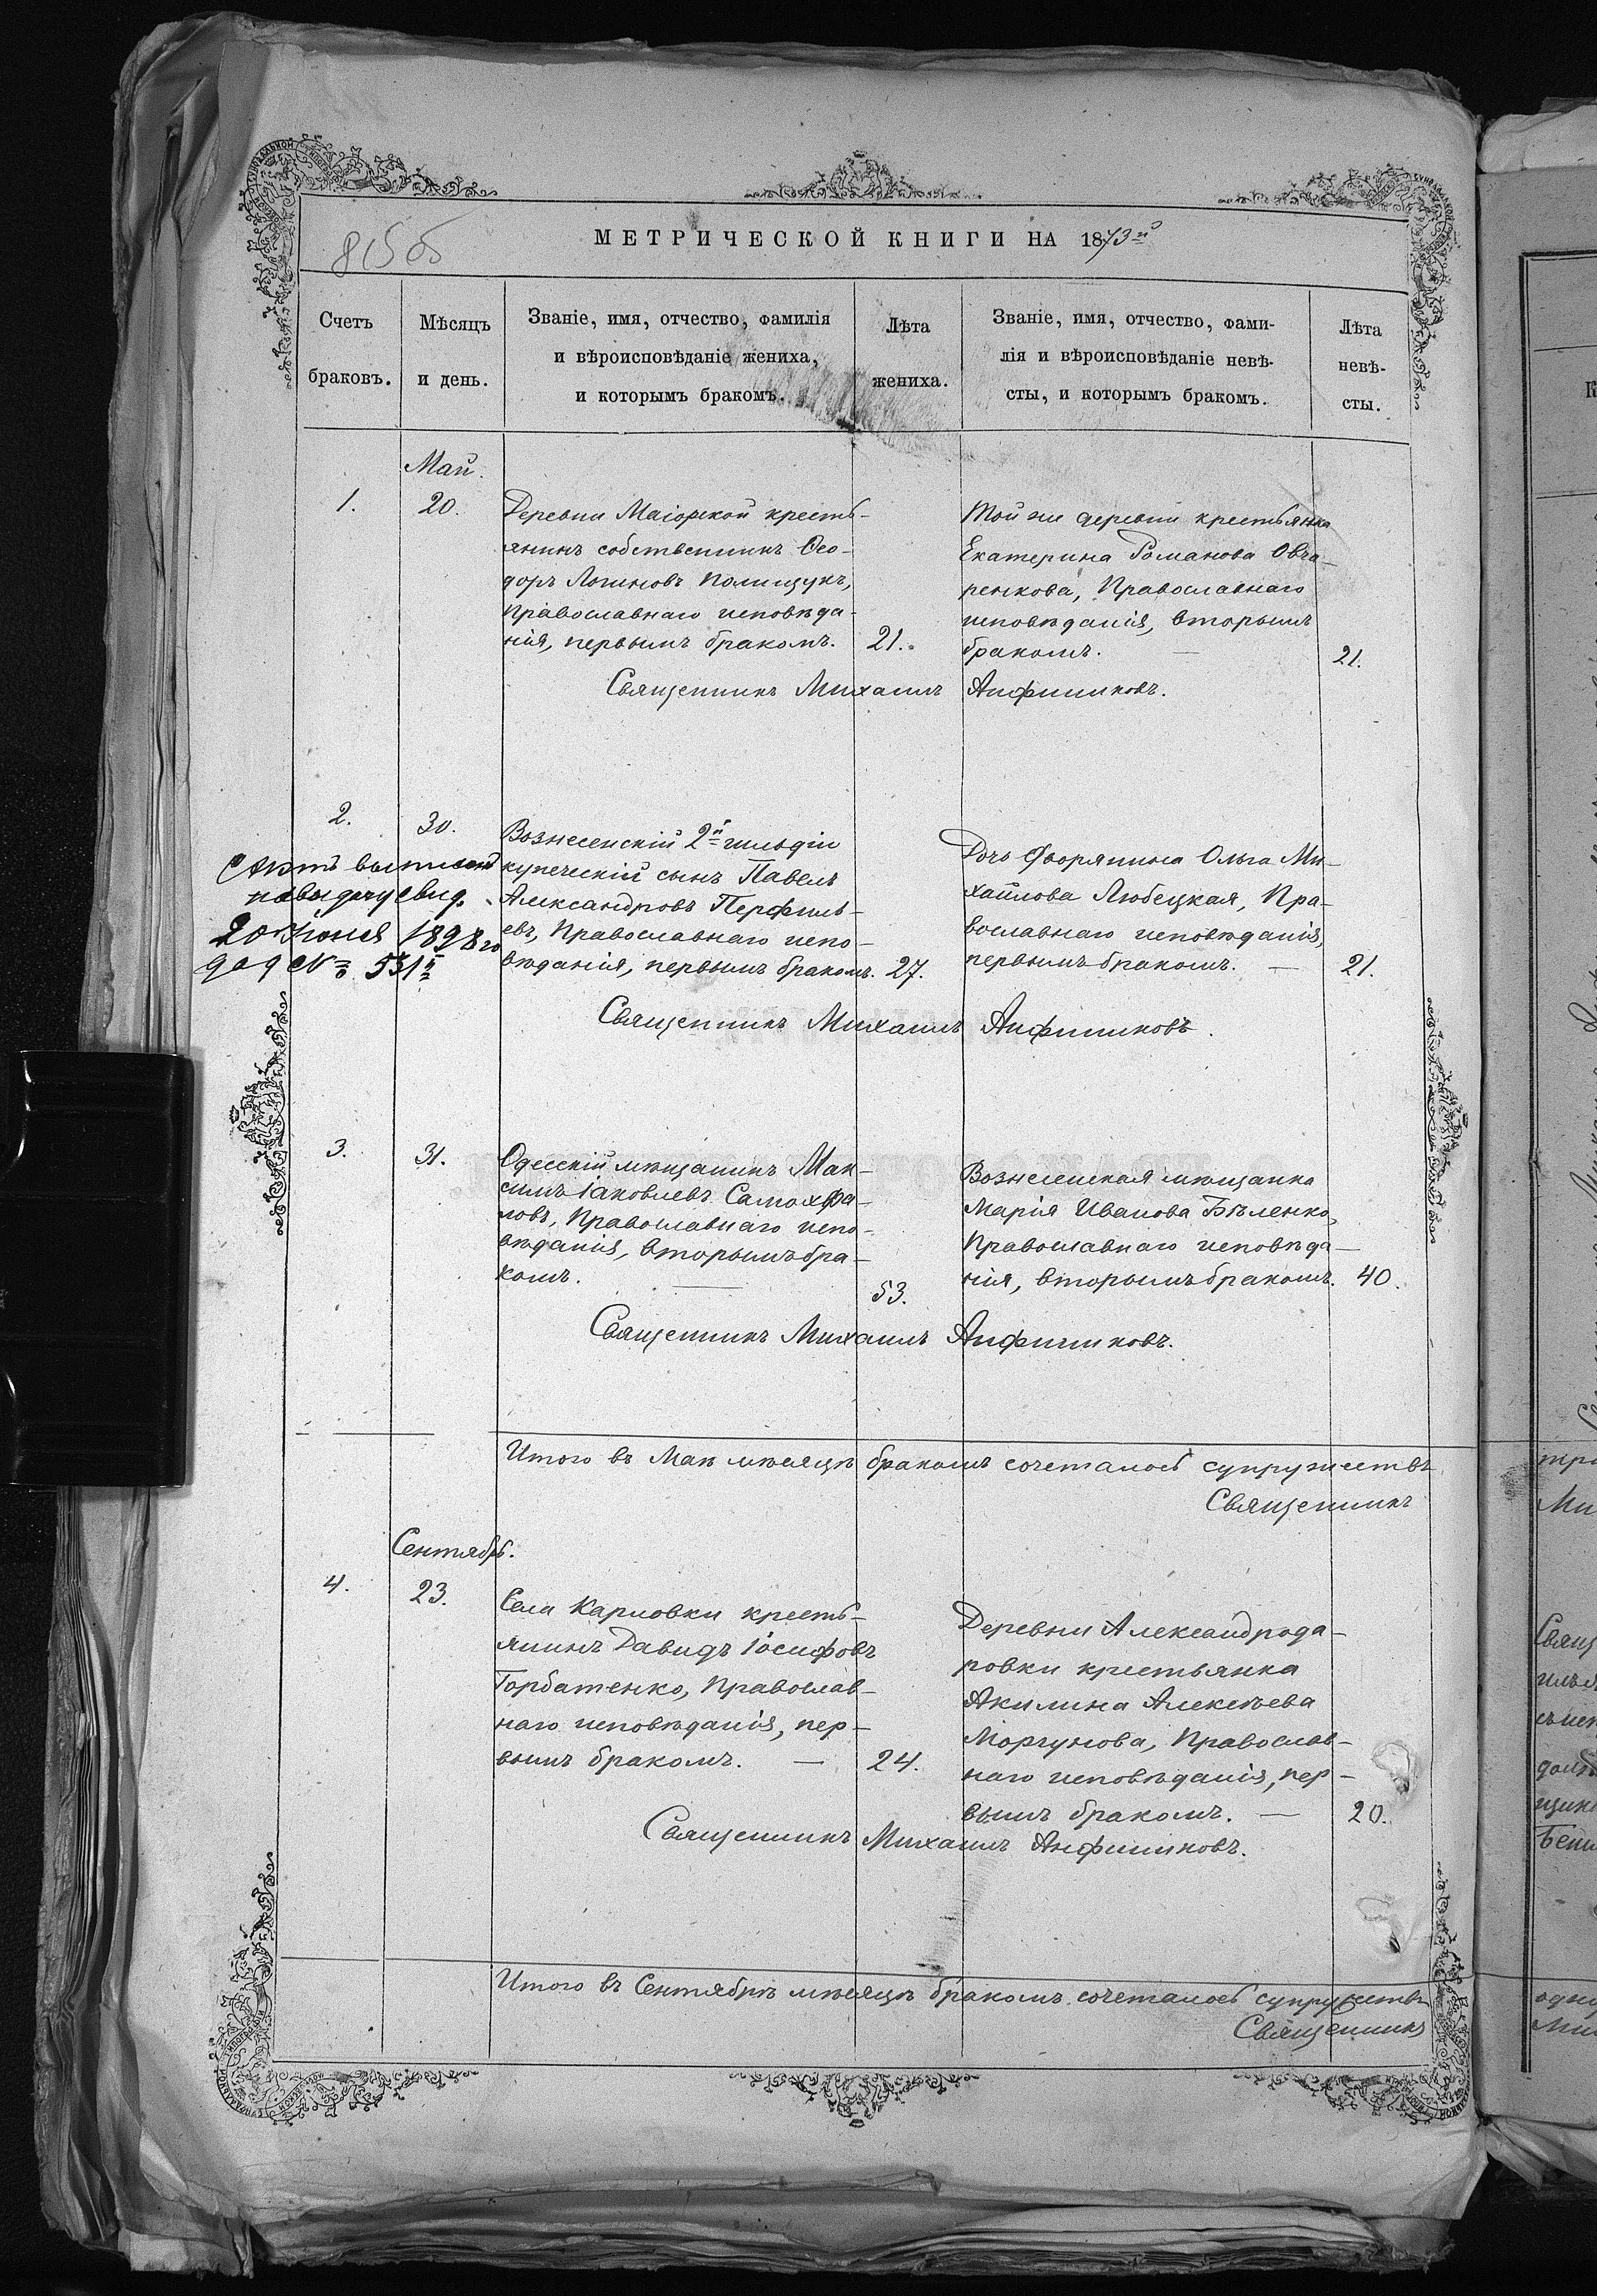 МЕТРИЧЕСКОЙ КНИГИ НА 1873й
815 об
Счетъ браковъ.
Мѣсяцъ и день.
Званіе, имя, отчество, фамилія
и вѣроисповѣданіе жениха,
и которымъ бракомъ.
Лѣта жениха.
Званіе, имя, отчество, фами-
лія и вѣроисповѣданіе невѣ-
сты, и которымъ бракомъ.
Лѣта
невѣ-
сты.
Май.
1.
20.
Деревни Маіорской кресть-
янинъ собственникъ Ѳео-
доръ Логиновъ Полищукъ,
Православнаго исповѣда-
нія, первымъ бракомъ.
21.
Той же деревни крестьянка
Екатерина Романова Овча-
ренкова, Православнаго
исповѣданія, вторымъ
бракомъ.
21.
Священникъ Михаилъ Анфиниковъ.
2.
30.
Вознесенскій 2й гильдіи
купеческій сынъ Павелъ
Александровъ Перфиль-
евъ, Православнаго испо-
вѣданія, первымъ бракомъ.
27.
Дочь дворянина Ольга Ми-
хайлова Любецкая, Пра-
вославнаго исповѣданія,
первымъ бракомъ.
21.
на выдачу свид.
20 Іюня 1898 го
года № 531
Священникъ Михаилъ Анфиниковъ.
3.
31.
Одесскій мѣщанинъ Мак-
симъ Іаковлевъ Самохфа-
ловъ, Православнаго испо-
вѣданія, вторымъ бра-
комъ.
53.
Вознесенская мѣщанка
Марія Иванова Бѣленко,
Православнаго исповѣда-
нія, вторымъ бракомъ.
40.
Священникъ Михаилъ Анфиниковъ.
Итого въ Маѣ мѣсяцѣ бракомъ сочеталось супружествъ
Священникъ
Сентябрь.
4.
23.
Села Карловки кресть-
янинъ Давидъ Іосифовъ
Горбатенко, Православ-
наго исповѣданія, пер-
вымъ бракомъ.
24.
Деревни Александрода-
ровки крестьянка
Акилина Алексѣева
Моргунова, Православ-
наго исповѣданія, пер-
вымъ бракомъ.
20.
Священникъ Михаилъ Анфиниковъ.
Итого въ Сентябрѣ мѣсяцѣ бракомъ сочеталось супружествъ
Священникъ